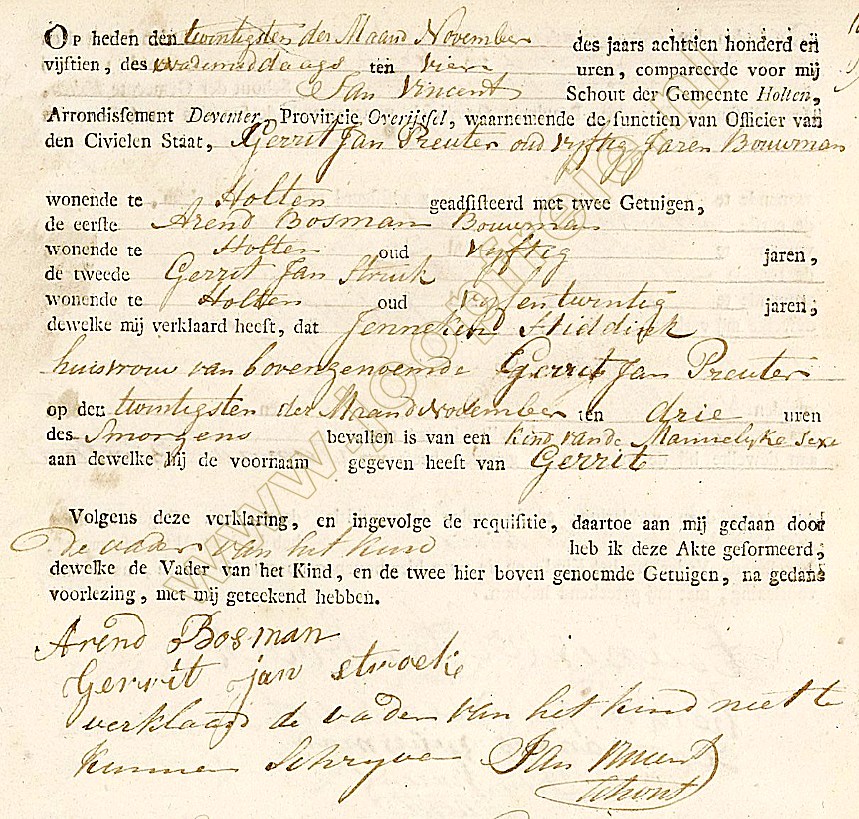 Op heden den twintigsten der Maand November des jaars achttien honderd en
vijftien, des namiddaags ten vier uren, compareerde voor mij
Jan Vincent Schout der Gemeente Holten,
Arrondissement Deventer, Provincie Overijssel, waarnemende de functien van Officier van
den Civielen Staat, Gerrit Jan Preuter oud vyftig Jaren Bouwman
wonende te Holten geadsisteerd met twee Getuigen,
de eerste Arend Bosman Bouwman
wonende te Holten oud vyftig jaren,
de tweede Gerrit Jan Struik
wonende te Holten oud vyfentwintig jaren;
dewelke mij verklaard heeft, dat Jenneken Middink
huisvrouw van bovengenoemde Gerrit Jan Preuter
op den twintigsten der Maand November ten drie uren
des Smorgens bevallen is van een Kind van de Mannelyke Sexe
aan dewelke hij de voornaam gegeven heeft van Gerrit
Volgens deze verklaring, en ingevolge de requisitie, daartoe aan mij gedaan door
de vader van het kind heb ik deze Akte geformeerd,
dewelke de Vader van het Kind, en de twee hier boven genoemde Getuigen, na gedane
voorlezing, met mij geteekend hebben.
Arend Bosman
Gerrit jan stroeke
verklaard de vader van het kind niet te
kunnen Schryve Jan Vincent
Schout